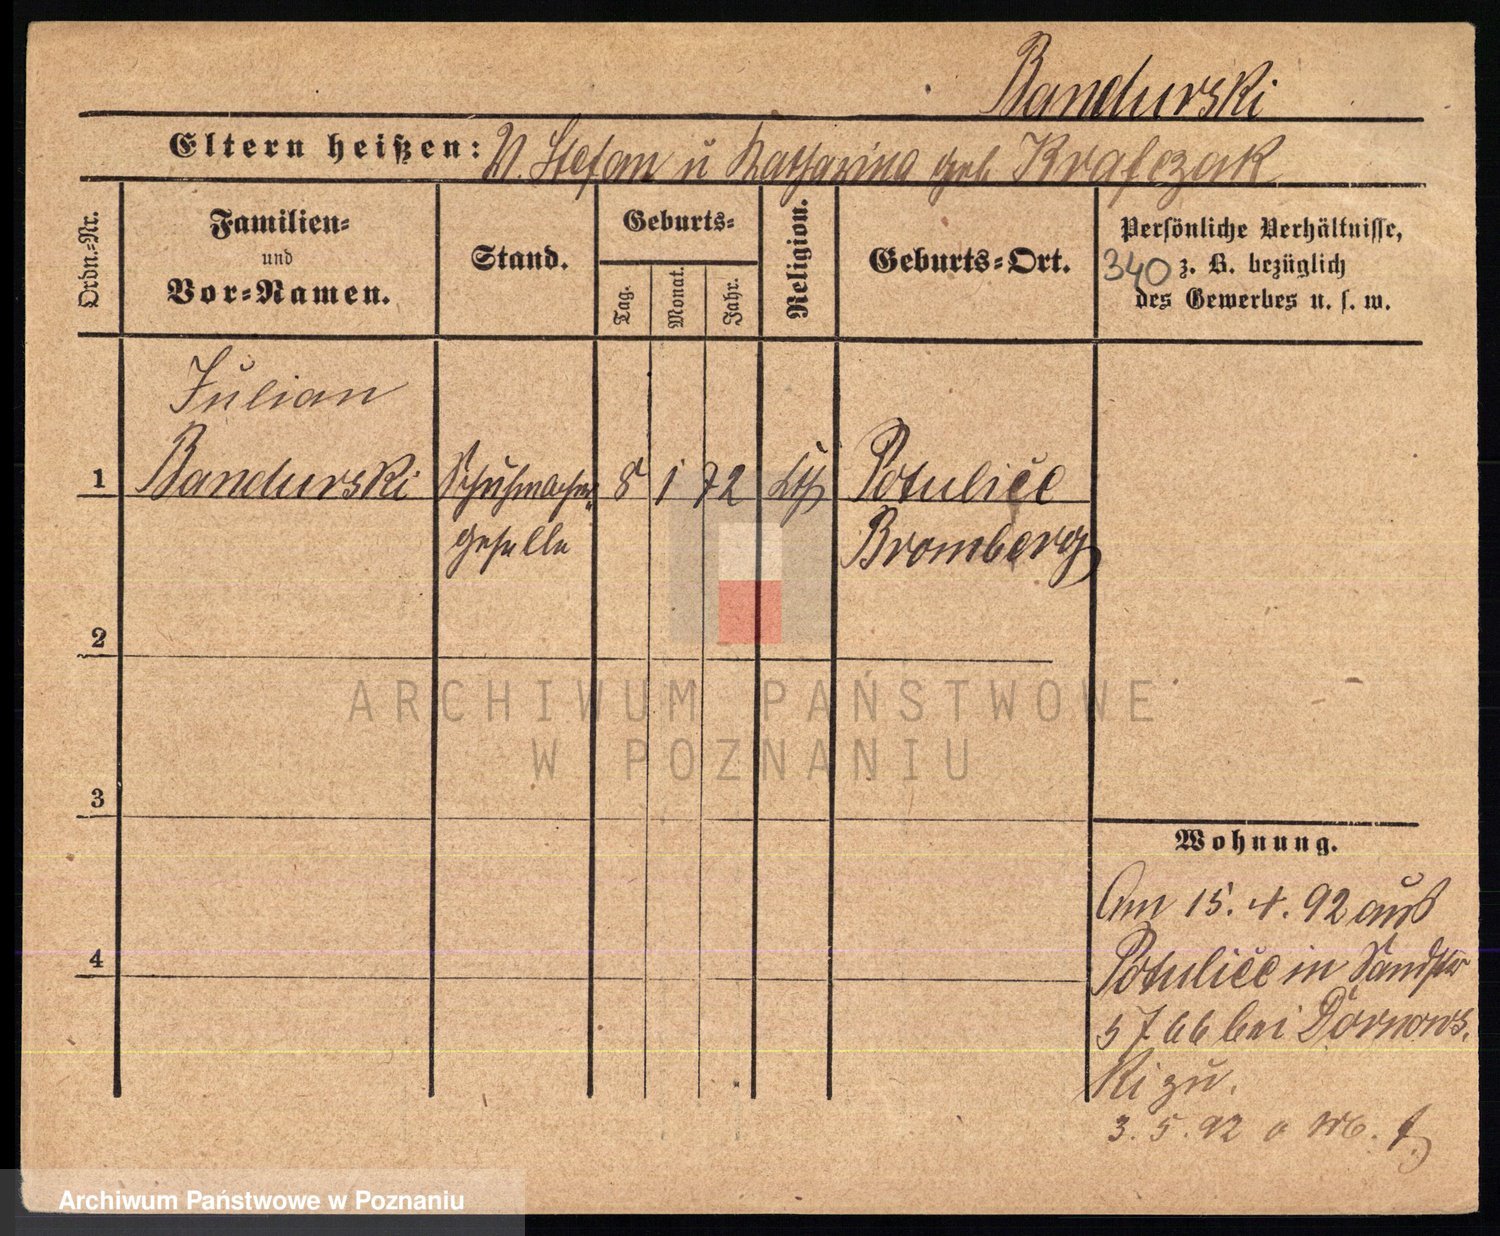 Bandurski
Eltern heißen: V. Stefan u Katharina geb Krafczak
Ordn.-Nr.
Familien-
und
Vor-Namen.
Stand.
Geburts-
Tag.
Monat.
Jahr.
Religion.
Geburts-Ort.
Persönliche Verhältnisse,
340 z. B. bezüglich
des Gewerbes u. s. w.
Julian
1 Bandurski Schuhmacher- 8 1 72 kth Potulice
geselle Bromberg
2
3
4
ARCHIWUM PAŃSTWOWE
W POZNANIU
Wohnung.
Am 15. 4. 92 aus
Potulice in Sandstr
5 7 66 bei Dornows-
ki zu.
3. 5. 92
Archiwum Państwowe w Poznaniu